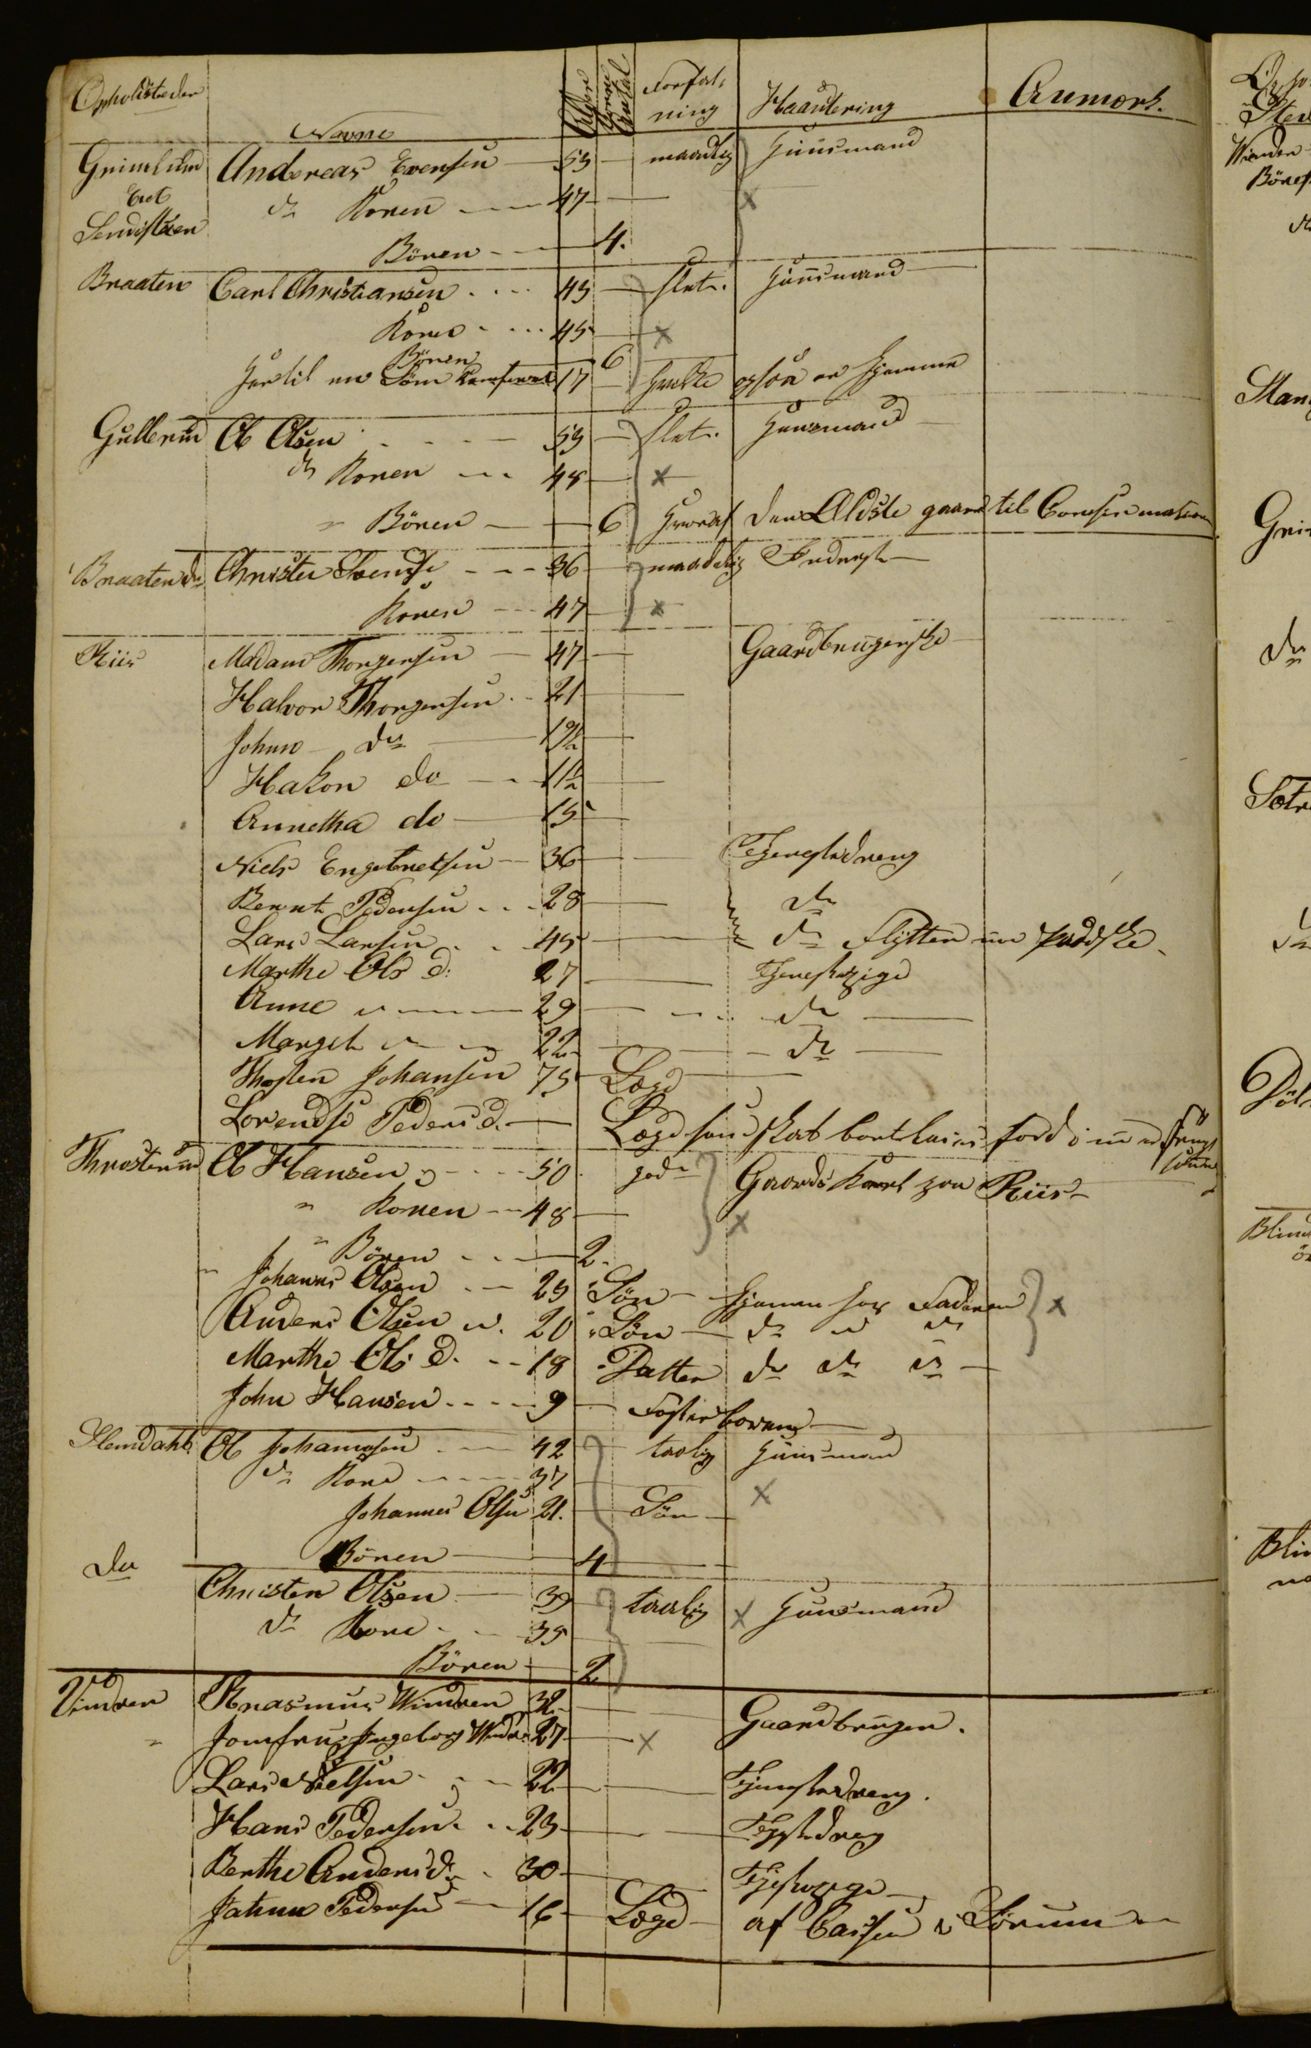 Opholdsteder Navne Alder Børne Antal Forfat- ning Haandtering Anmærk.
Grimlihen Andreas Evensen 53 maadelig Huusmand
Eiet do Konen 47
Børen 4.
Braaten Carl Christiansen 43 slet. Huusmand
Kone 45
Børen 6
Hertil en Søn 17 ogsaa er hjemme
Gullerud Ole Olsen 53 slet. Huusmand
do Konen 48
" Børen 6 Hvoraf den Ældste gaard til Confirmation
Braaten do Christen 36 maadelig Inderst
Konen 47
Riis Madam Thorgersen 47 Gaardbrugerske
Halvor Thorgersen 21
Johan do 19½
Hakon do 11½
Annetha do 15
Niels Engebretsen 36 Tjenestedreng
Bernt Pedersen 28 do
Lars Larsen 45 do Flytter
Marthe Ols d. 27 Tjenestepige
Anne " 29 do
Marget " 22 do
Thosten Johansen 75 Lægd
Lorendse Peders d. Lægd
Throsterud Ole Hansen 50 god Gaards Karl paa Riis
" Konen 48
" Børen 2.
" Johannes Olsen 23 Søn hjemme hos Faderen
Anders Olsen 20 Søn do " do
Marthe Ols d. 18 Datter do do do
John Hansen 9 Fosterbaren
Slemdahl Ole Johannesen 42 taalig Huusmand
do Kone 37
Johannes Olsen 21. Søn
Børen 4
do Christen Olsen 39 taalig Huusmand
do Kone 35
Børen 2
Vindren Rrasmus Windren 32 Gaardbruger.
" Jomfru Ingeborg Windren 27
Lars Nielsen 22 Tjenestedreng.
Hans Pedersen 23
Berthe Anders d. 30
Johan Pedersen 16 Lægd af Cassen i Sørum